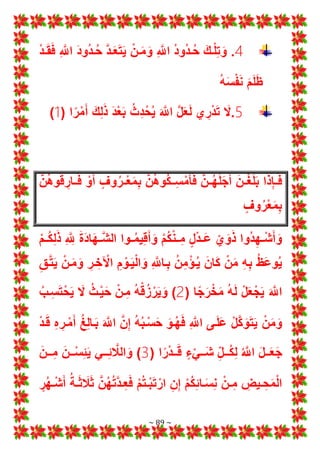 4. وَتِلْكَ حُدُودُ اللهِ وَمَنْ يَتَعَدَّ حُدُودَ اللهِ فَقَدْ
ظَلَمَ نَفْسَهُ
5.لَا تَدْرِي لَعَلَّ اللهَ يُحْدِثُ بَعْدَ ذَلِكَ أَمْرًا (1)
فَإِذَا بَلَغْنَ أَجَلَهُنَّ فَأَمْسِكُوهُنَّ بِمَعْرُوفٍ أَوْ فَارِقُوهُنَّ
بِمَعْرُوفٍ
وَأَشْهِدُوا ذَوَيْ عَدْلٍ مِنْكُمْ وَأَقِيمُوا الشَّهَادَةَ لِلهِ ذَلِكُمْ
يُوعَظُ بِهِ مَنْ كَانَ يُؤْمِنُ بِاللهِ وَالْيَوْمِ الْآخِرِ وَمَنْ يَتَّقِ
اللهَ يَجْعَلْ لَهُ مَخْرَجًا (2) وَيَرْزُقْهُ مِنْ حَيْثُ لَا يَحْتَسِبُ
وَمَنْ يَتَوَكَّلْ عَلَى اللهِ فَهُوَ حَسْبُهُ إِنَّ اللهَ بَالِغُ أَمْرِهِ قَدْ
جَعَلَ اللهُ لِكُلِّ شَيْءٍ قَدْرًا (3) وَاللَّائِي يَئِسْنَ مِنَ
الْمَحِيضِ مِنْ نِسَائِكُمْ إِنِ ارْتَبْتُمْ فَعِدَّتُهُنَّ ثَلَاثَةُ أَشْهُرٍ
~ 89 ~